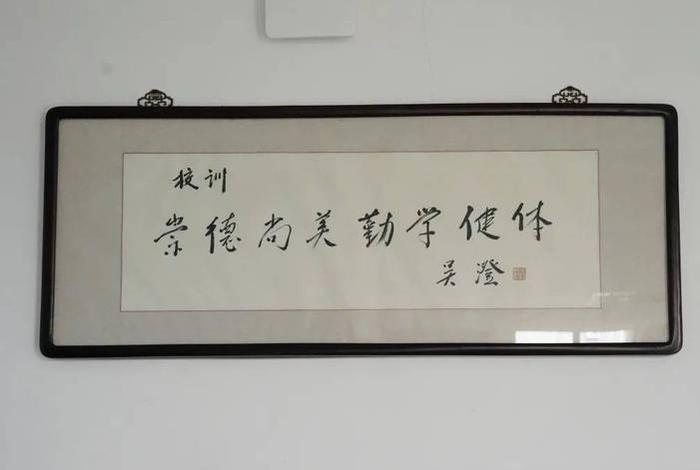 校训
崇德尚美勤学健体
吴澄